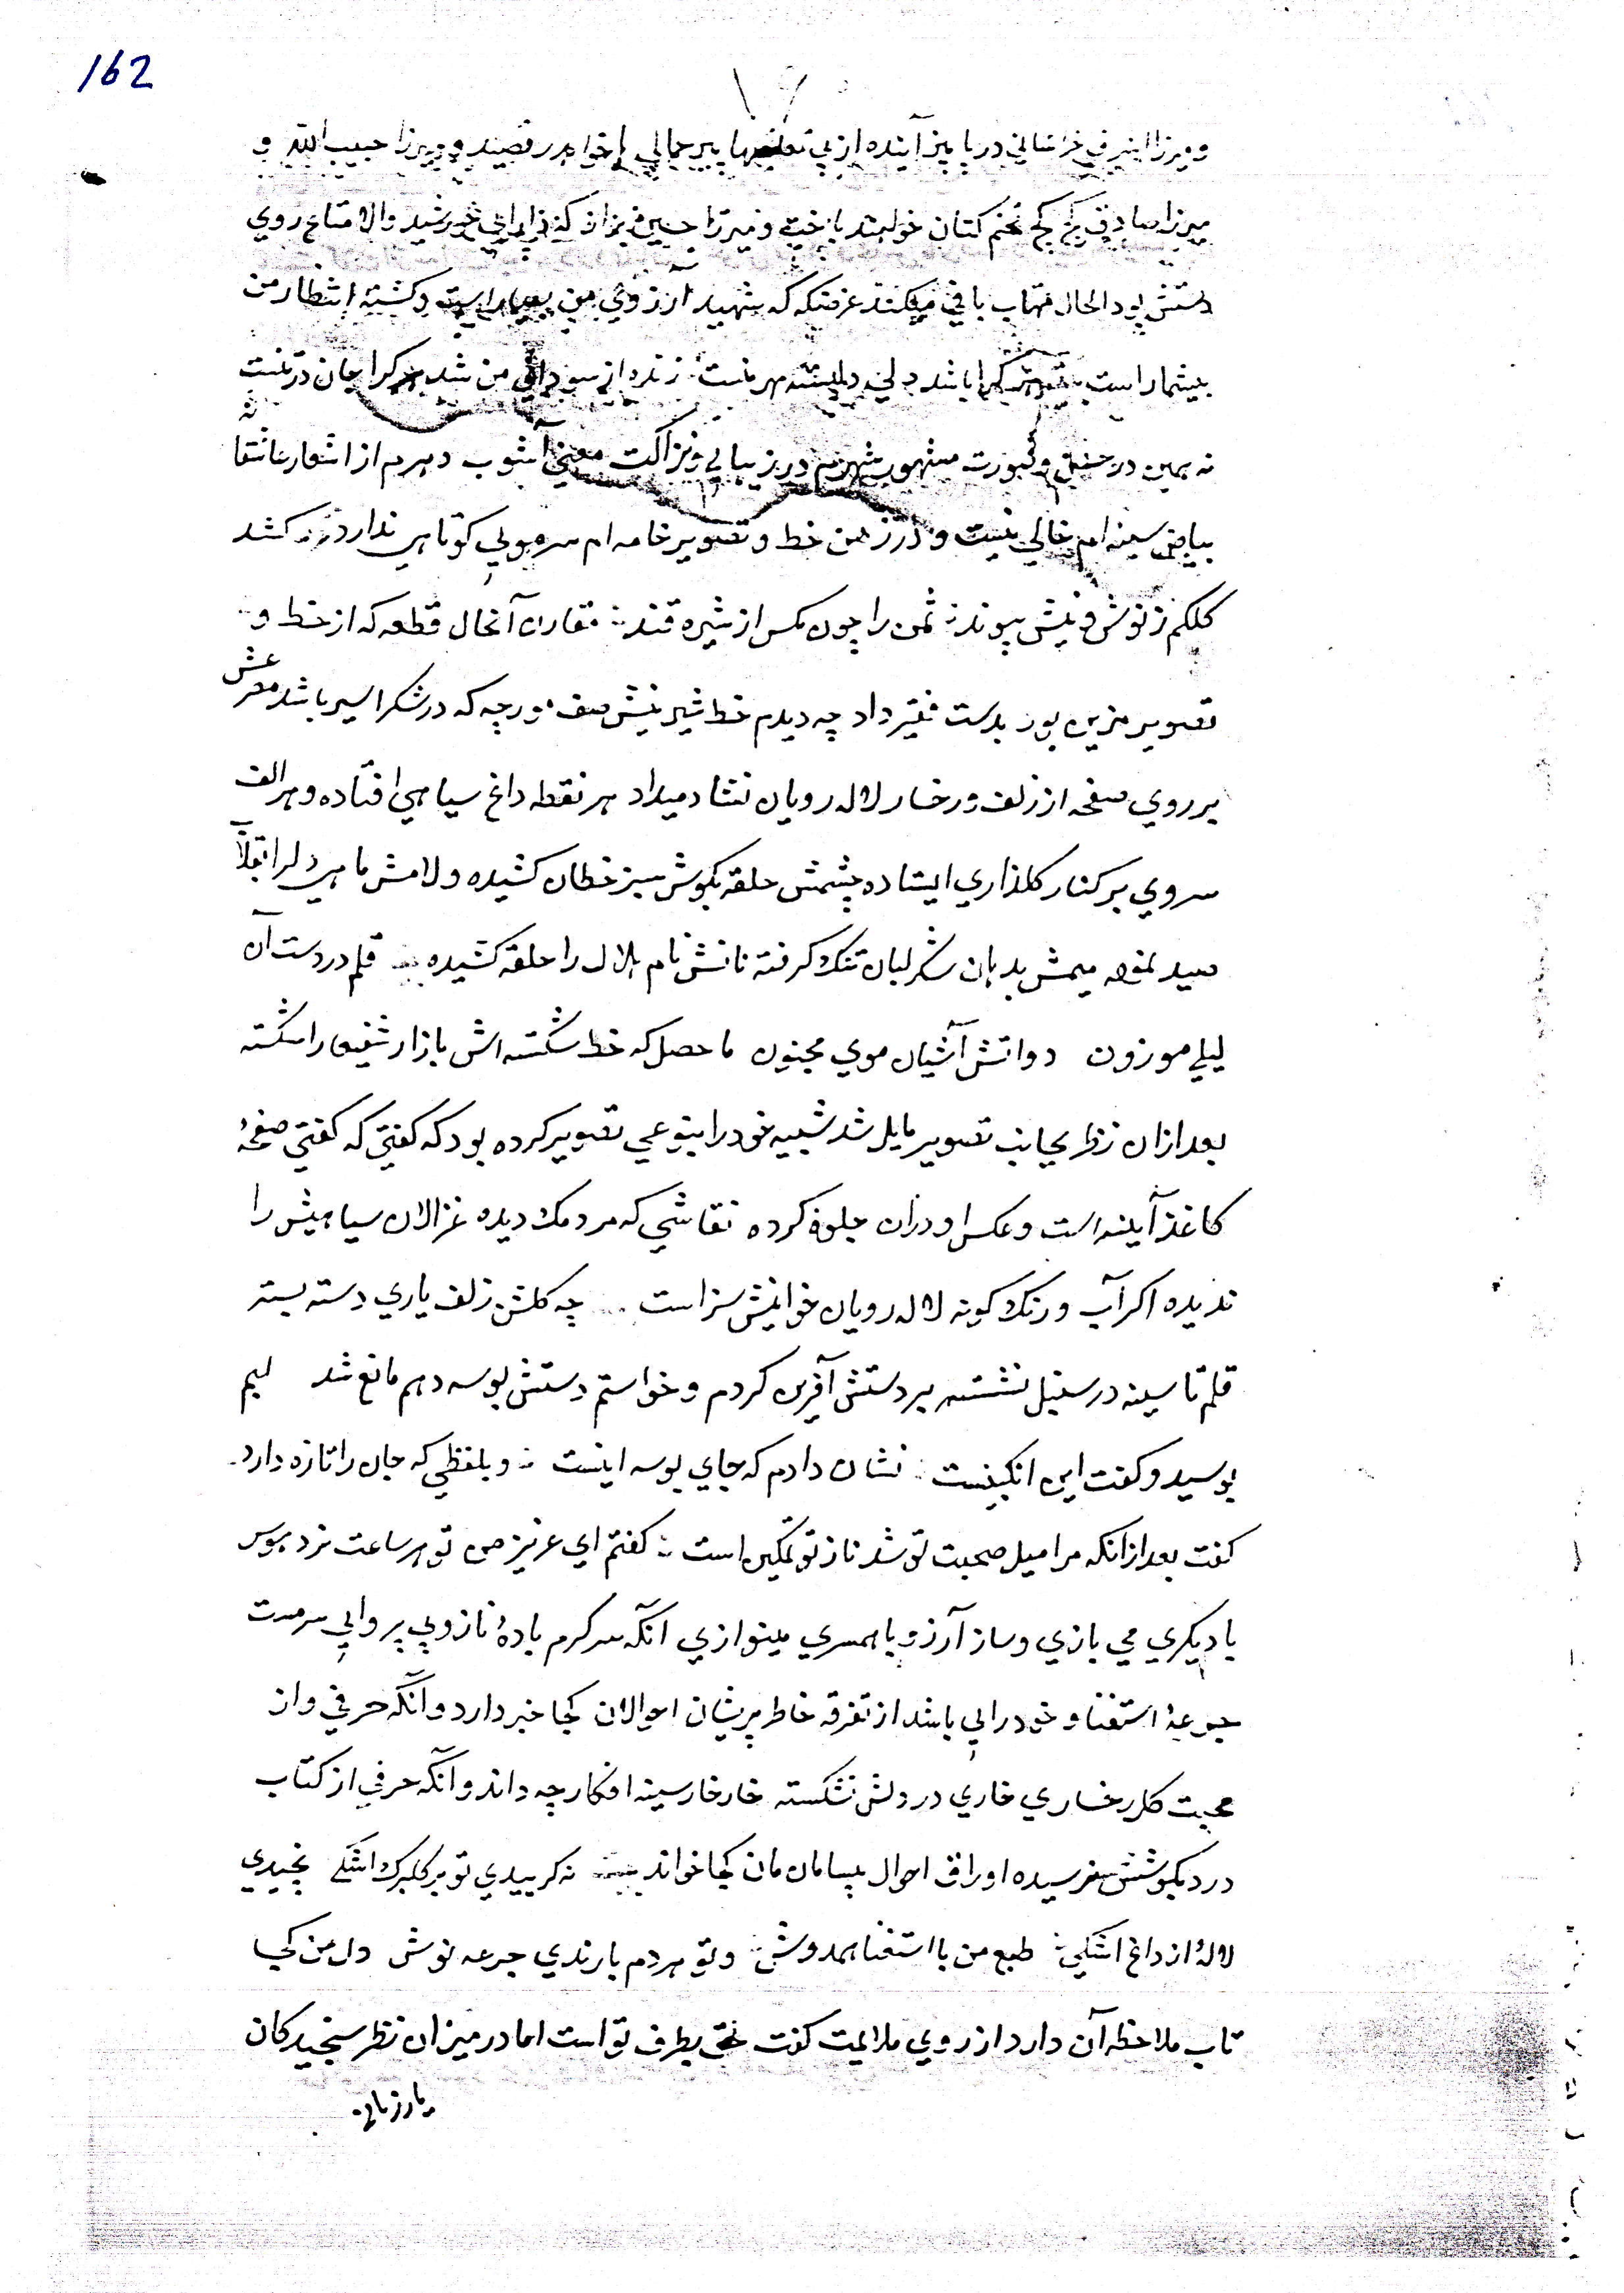 162
و میرزا اشرفی خراسانی در پاییز آینده از بی پیر جمالی خواهد رقصید و میرزا حبیب الله و
میرزا صادق کج کج تخم کتان خواهند باخت و میرزا حسین بزاز که خورشید والا متاع روی
دستش بود الحال مهتاب بافی میکند غرضکه که شهید آرزوی من بسیار است و کشته انتظار من
بیشمار است هر کرا باشد دلی دلبسته مهر منست زنده از سودای من شد هر کرا جان در تنست
نه همین در حسن و صورت مشهور شهرم در زیبایی و نزاکت معنی آشوب دهرم از اشعار عاشقانه
بیاض سینه ام خالی نیست و در زمین خط و تصویر خامه ام سر مویی کوتاهی ندارد کشد
کلکم ز نوش و نیش پیوند ثمن را چون مکس از شیره قند مقارن آنحال قطعه که از خط و
تصویر مزین بود بدست فقیر داد چه دیدم خط شیرینش صف مورچه که در شکر اسیر باشد معرعش
بر روی صفحه از زلف و رخسار لاله رویان نشاد میداد هر نقطه داغ سیاهی افتاده و هر الف
سروی بر کنار کلذاری ایستاده چشمش حلقه بکوش سبز خطان کشیده و لامش ماهی دلرا بقلاب
صید نموده میمش بدهان شکر لبان تنک کرفته نانش نام هلال را حلقه کشیده قلم در دست آن
لیلی موزون دواتش آشیان موی مجنون ماحصل که خط شکسته اش بازار شفیعا را شکسته
بعد ازان نظر بجانب تصویر مایل شد شبیه خود را بنوعی تصویر کرده بود که کفتی که کفتی صفحهٔ
کاغذ آینه است و عکس او دران جلوه کرده نقاشی که مردمک دیده غزالان سیاهیش را
ندیده اکر آب و رنک کونه لاله رویان خوانیش سزاست چه کلشن زلف یاری دسته بسته
قلم تا سینه در سنبل نشسته بر دستش آفرین کردم و خواستم دستش بوسه دهم مانع شد لبم
بوسید و کفت این انکبینست نشان دادم که جای بوسه اینست و بلفظی که جان را تازه دارد
کفت بعد ازانکه مرا میل صحبت تو شد ناز تو تمکین است کفتم ای عزیز من تو هر ساعت نرد هوس
با دیکری می بازی و ساز آرزو با همسری مینوازی انکه سرکرم بادهٔ ناز و بی پروایی سرمست
جرعهٔ استغنا و خودرایی باشد از تفرقه خاطر پریشان احوالان کجا خبر دارد و آنکه حرفی و از
محبت کلرخساری خاری در دلش نشکسته خار خار سینه افکار چه داند و آنکه حرفی از کتاب
درد بکوشش نرسیده اوراق احوال بیسامان مان کجا خواند نه کریدی تو بر کلبرک اشکی نچیدی
لالهٔ از داغ اشکی طبع من با استغنا همدوش و تو هر دم با رندی جرعه نوش دل من کی
تاب ملاحظه آن دارد از روی ملایمت کفت حق بطرف تو است اما در میزان نظر سنجیدکان